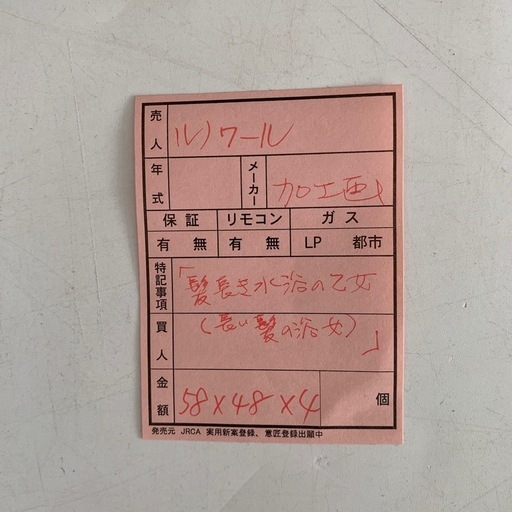 売人 ルノワール
年式 メーカー 加工画
保証 リモコン ガス
有 無 有 無 LP 都市
特記事項 「髪長き水浴の乙女
買人 (長い髪の浴女)」
金額 58×48×4 個
発売元 JRCA 実用新案登録、意匠登録出願中